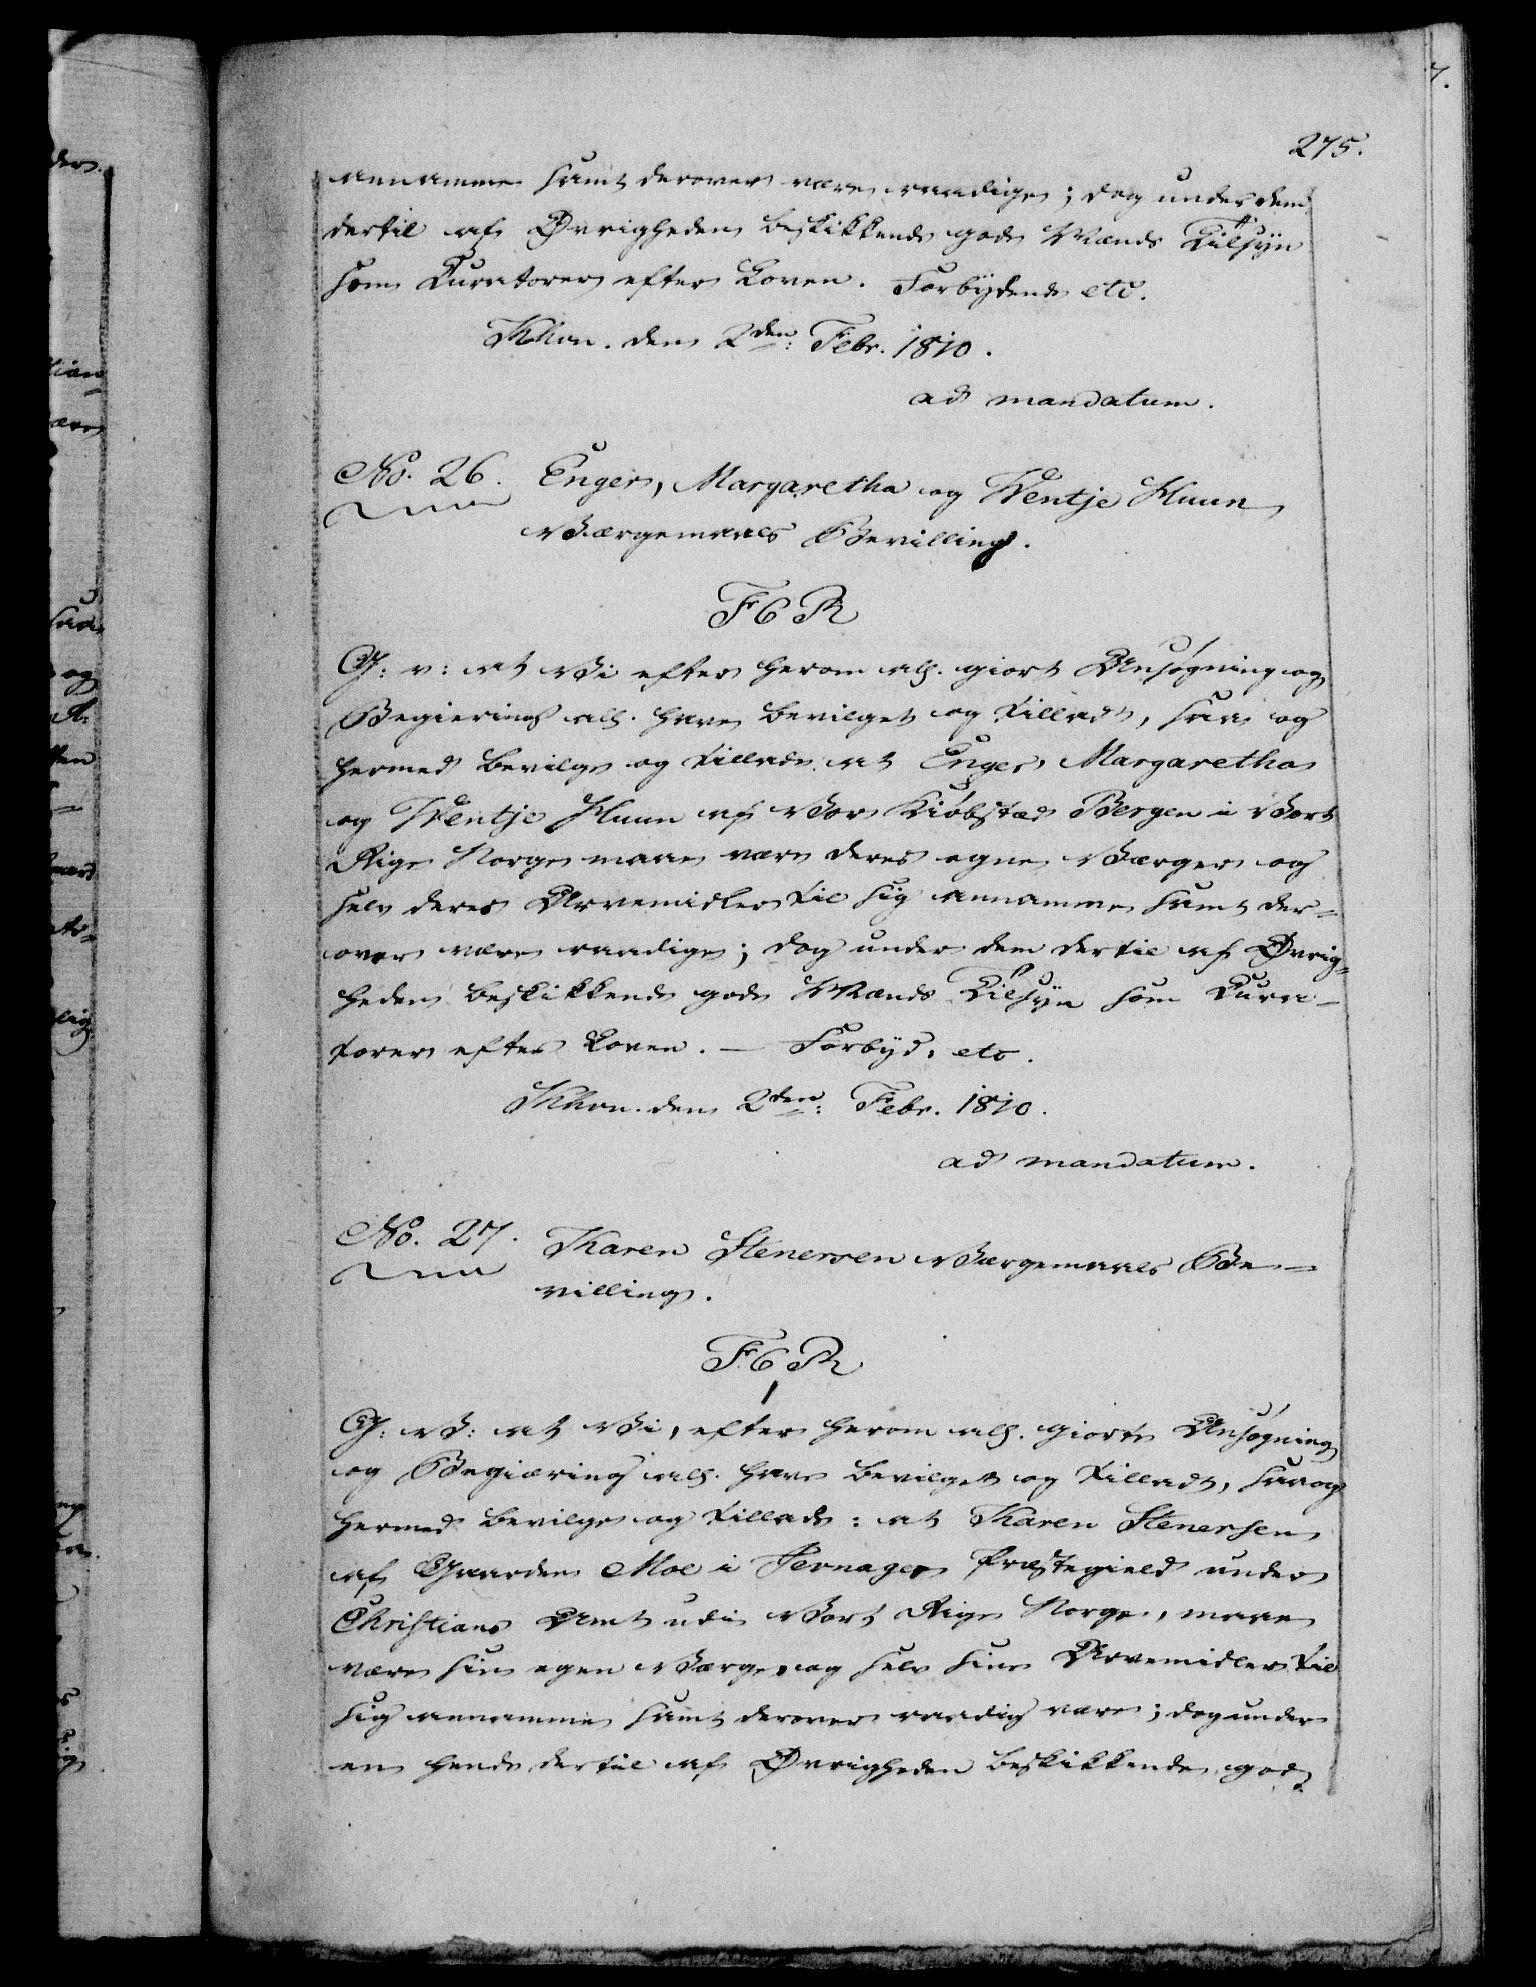 275.
annamme samt derover være raadige; dog under dem
dertil af Øvrigheden beskikkende gode Mænds Tilsÿn
som Curatorer efter Loven. Forbÿdende etc.
Khvn. den 2den: Febr. 1810.
ad mandatum.
No. 26. Enger, Margaretha og Wentje Kuun
Værgemaals Bevilling.
F6R
G: v: at Vi efter herom all. giort Ansøgning og
Begiering all. have bevilget og tilladt, saa og
hermed bevilge og tillade at Enger, Margaretha
og Wentje Kuun af Vor Kiøbstæd Bergen i Vort
Rige Norge maae være deres egne Værger og
selv deres Arvemidler til sig annamme samt der-
over være raadige; dog under dem dertil af Øvrig-
heden beskikkende gode Mænds Tilsÿn som Cura-
torer efter Loven. — Forbÿd. etc.
Khvn. den 2den: Febr. 1810.
ad mandatum.
No. 27. Karen Stenersen Værgemaals Be-
villing.
F6R
G: V: at Vi, efter herom all. giorte Ansøgning
og Begiæring all. have bevilget og tilladt, saa og
hermed bevilge og tillade: at Karen Stenersen
af Gaarden Moe i Jernager Præstegield under
Christians Amt udi Vort Rige Norge, maae
være sin egen Værge, og selv sine Arvemidler til
sig annamme samt derover raadig være; dog under
en hende dertil af Øvrigheden beskikkende god